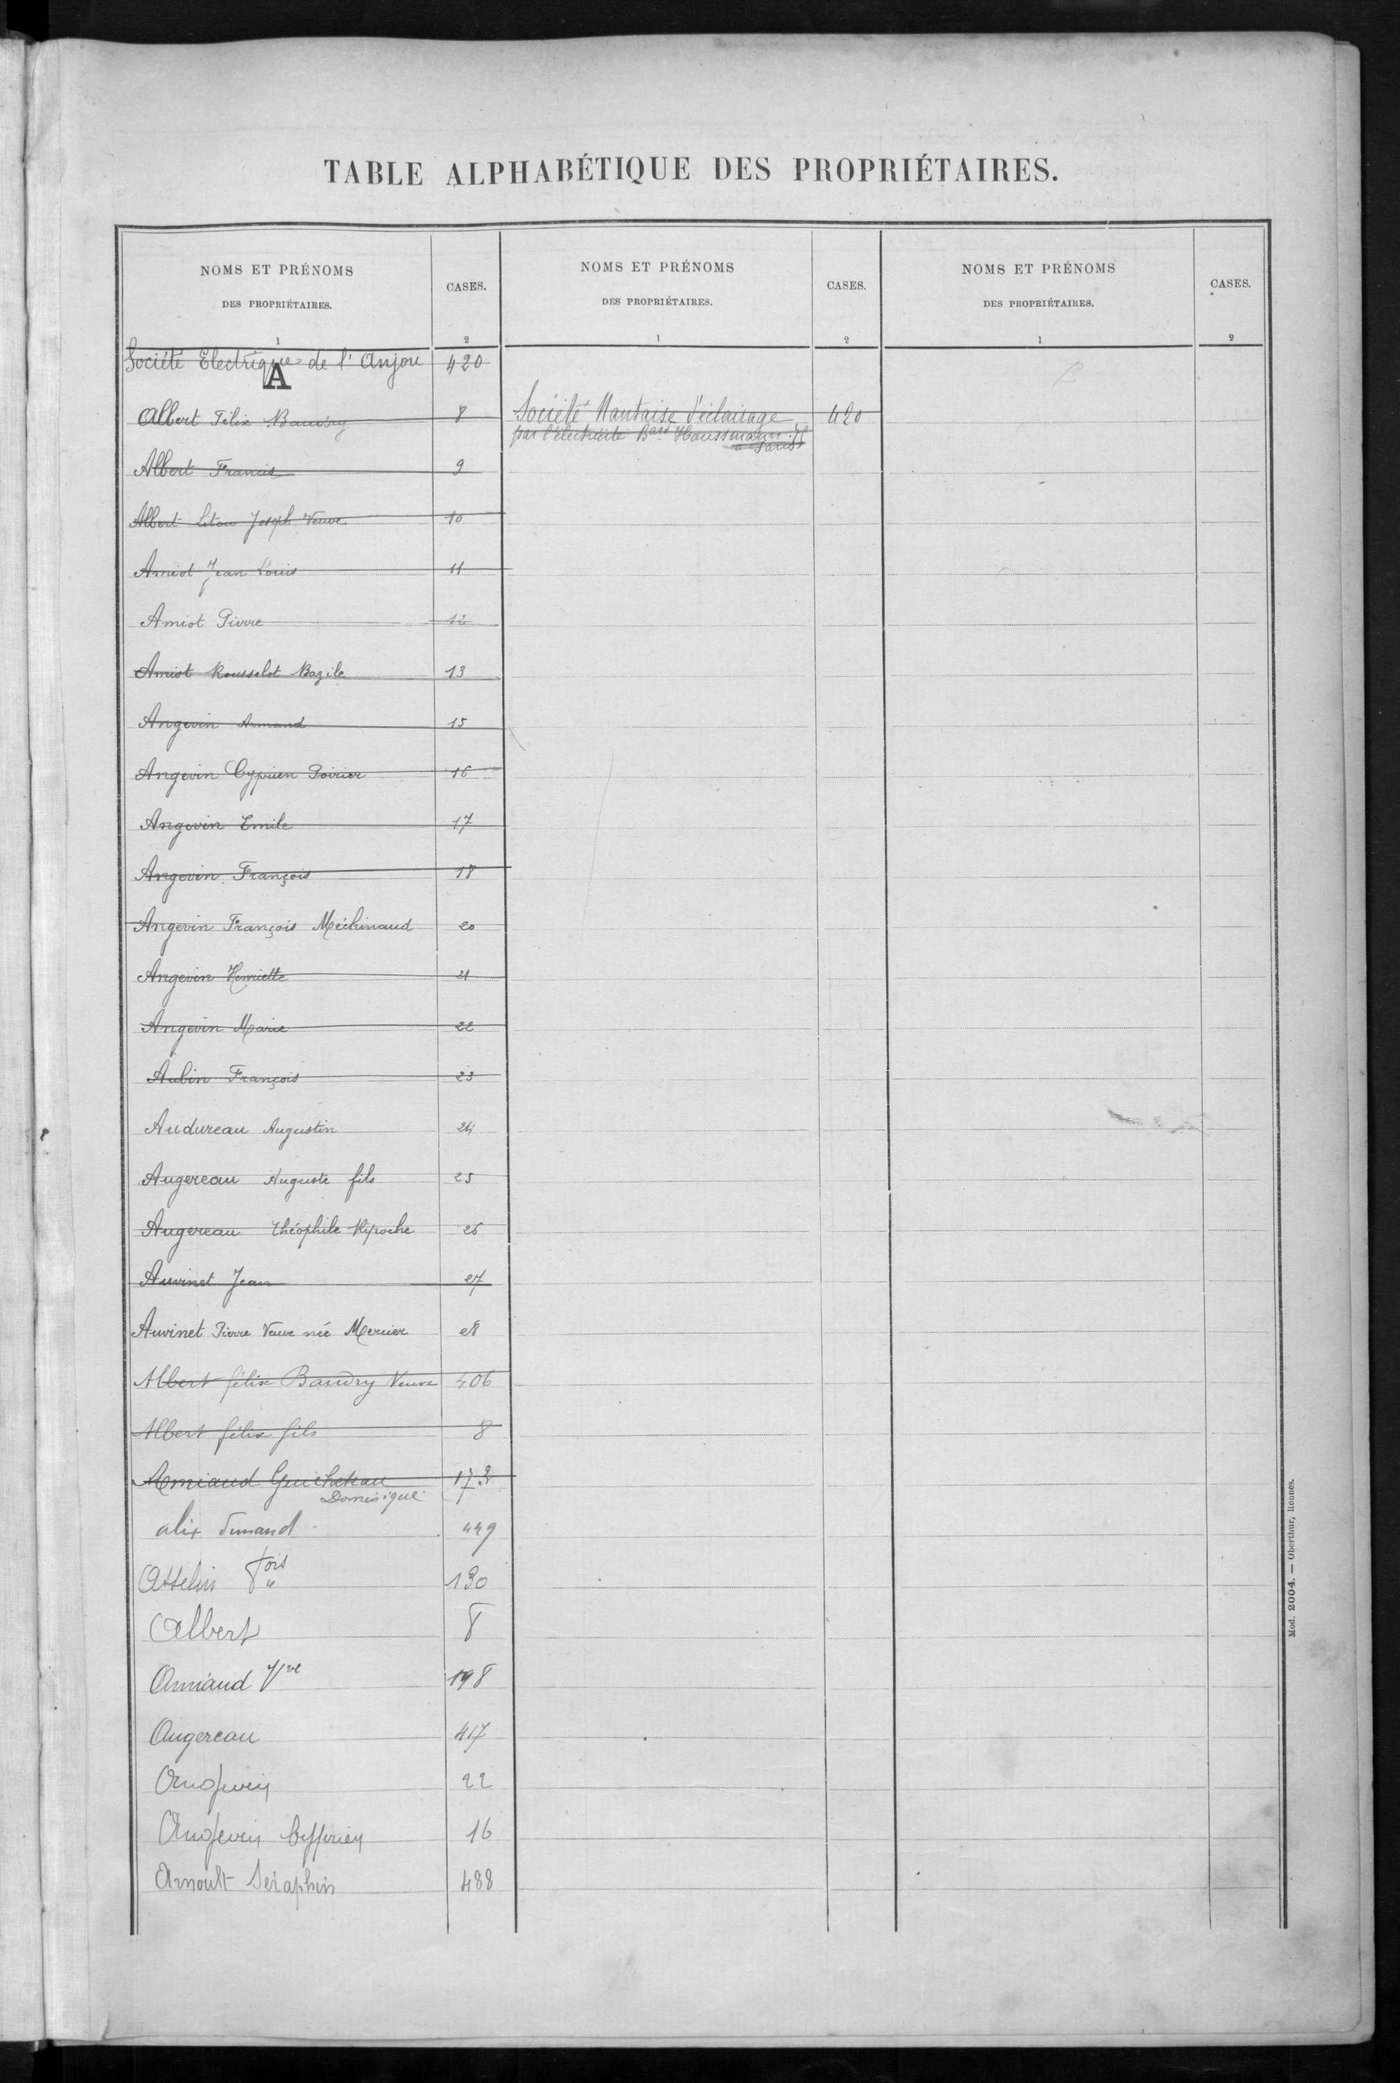 TABLE ALPHABÉTIQUE DES PROPRIÉTAIRES.
NOMS ET PRÉNOMS DES PROPRIÉTAIRES. CASES. NOMS ET PRÉNOMS DES PROPRIÉTAIRES. CASES. NOMS ET PRÉNOMS DES PROPRIÉTAIRES. CASES.
1 2 1 2 1 2
Société Electrique de l'Anjou 420
A
Albert Félix Baudry 8
Albert Francis 9
Albert Joseph Veuve 10
Amiot Jean Louis 11
Amiot Pierre 12
Amiot Rousselot Bazile 13
Angevin Armand 15
Angevin Cyprien Poirier 16
Angevin Emile 17
Angevin François 18
Angevin François Méchinaud 20
Angevin Henriette 21
Angevin Marie 22
Aubin François 23
Audureau Augustin 24
Augereau Auguste fils 25
Augereau Théophile Ripoche 26
Auvinet Jean 27
Auvinet Pierre Veuve née Mercier 28
Albert félix Baudry Veuve 406
Albert félix fils 8
Amiaud Guicheteau 173
Dominique
alix 449
Attelin Fois 130
"
Albert 8
Amiaud Vve 198
Augereau 417
Angevin 22
Angevin Cyprien 16
Arnoult Séraphin 488
Société Nantaise d'éclairage 420
par l'électricité Bard Haussmann
à Paris
Mod. 2004. — Oberthur, Rennes.